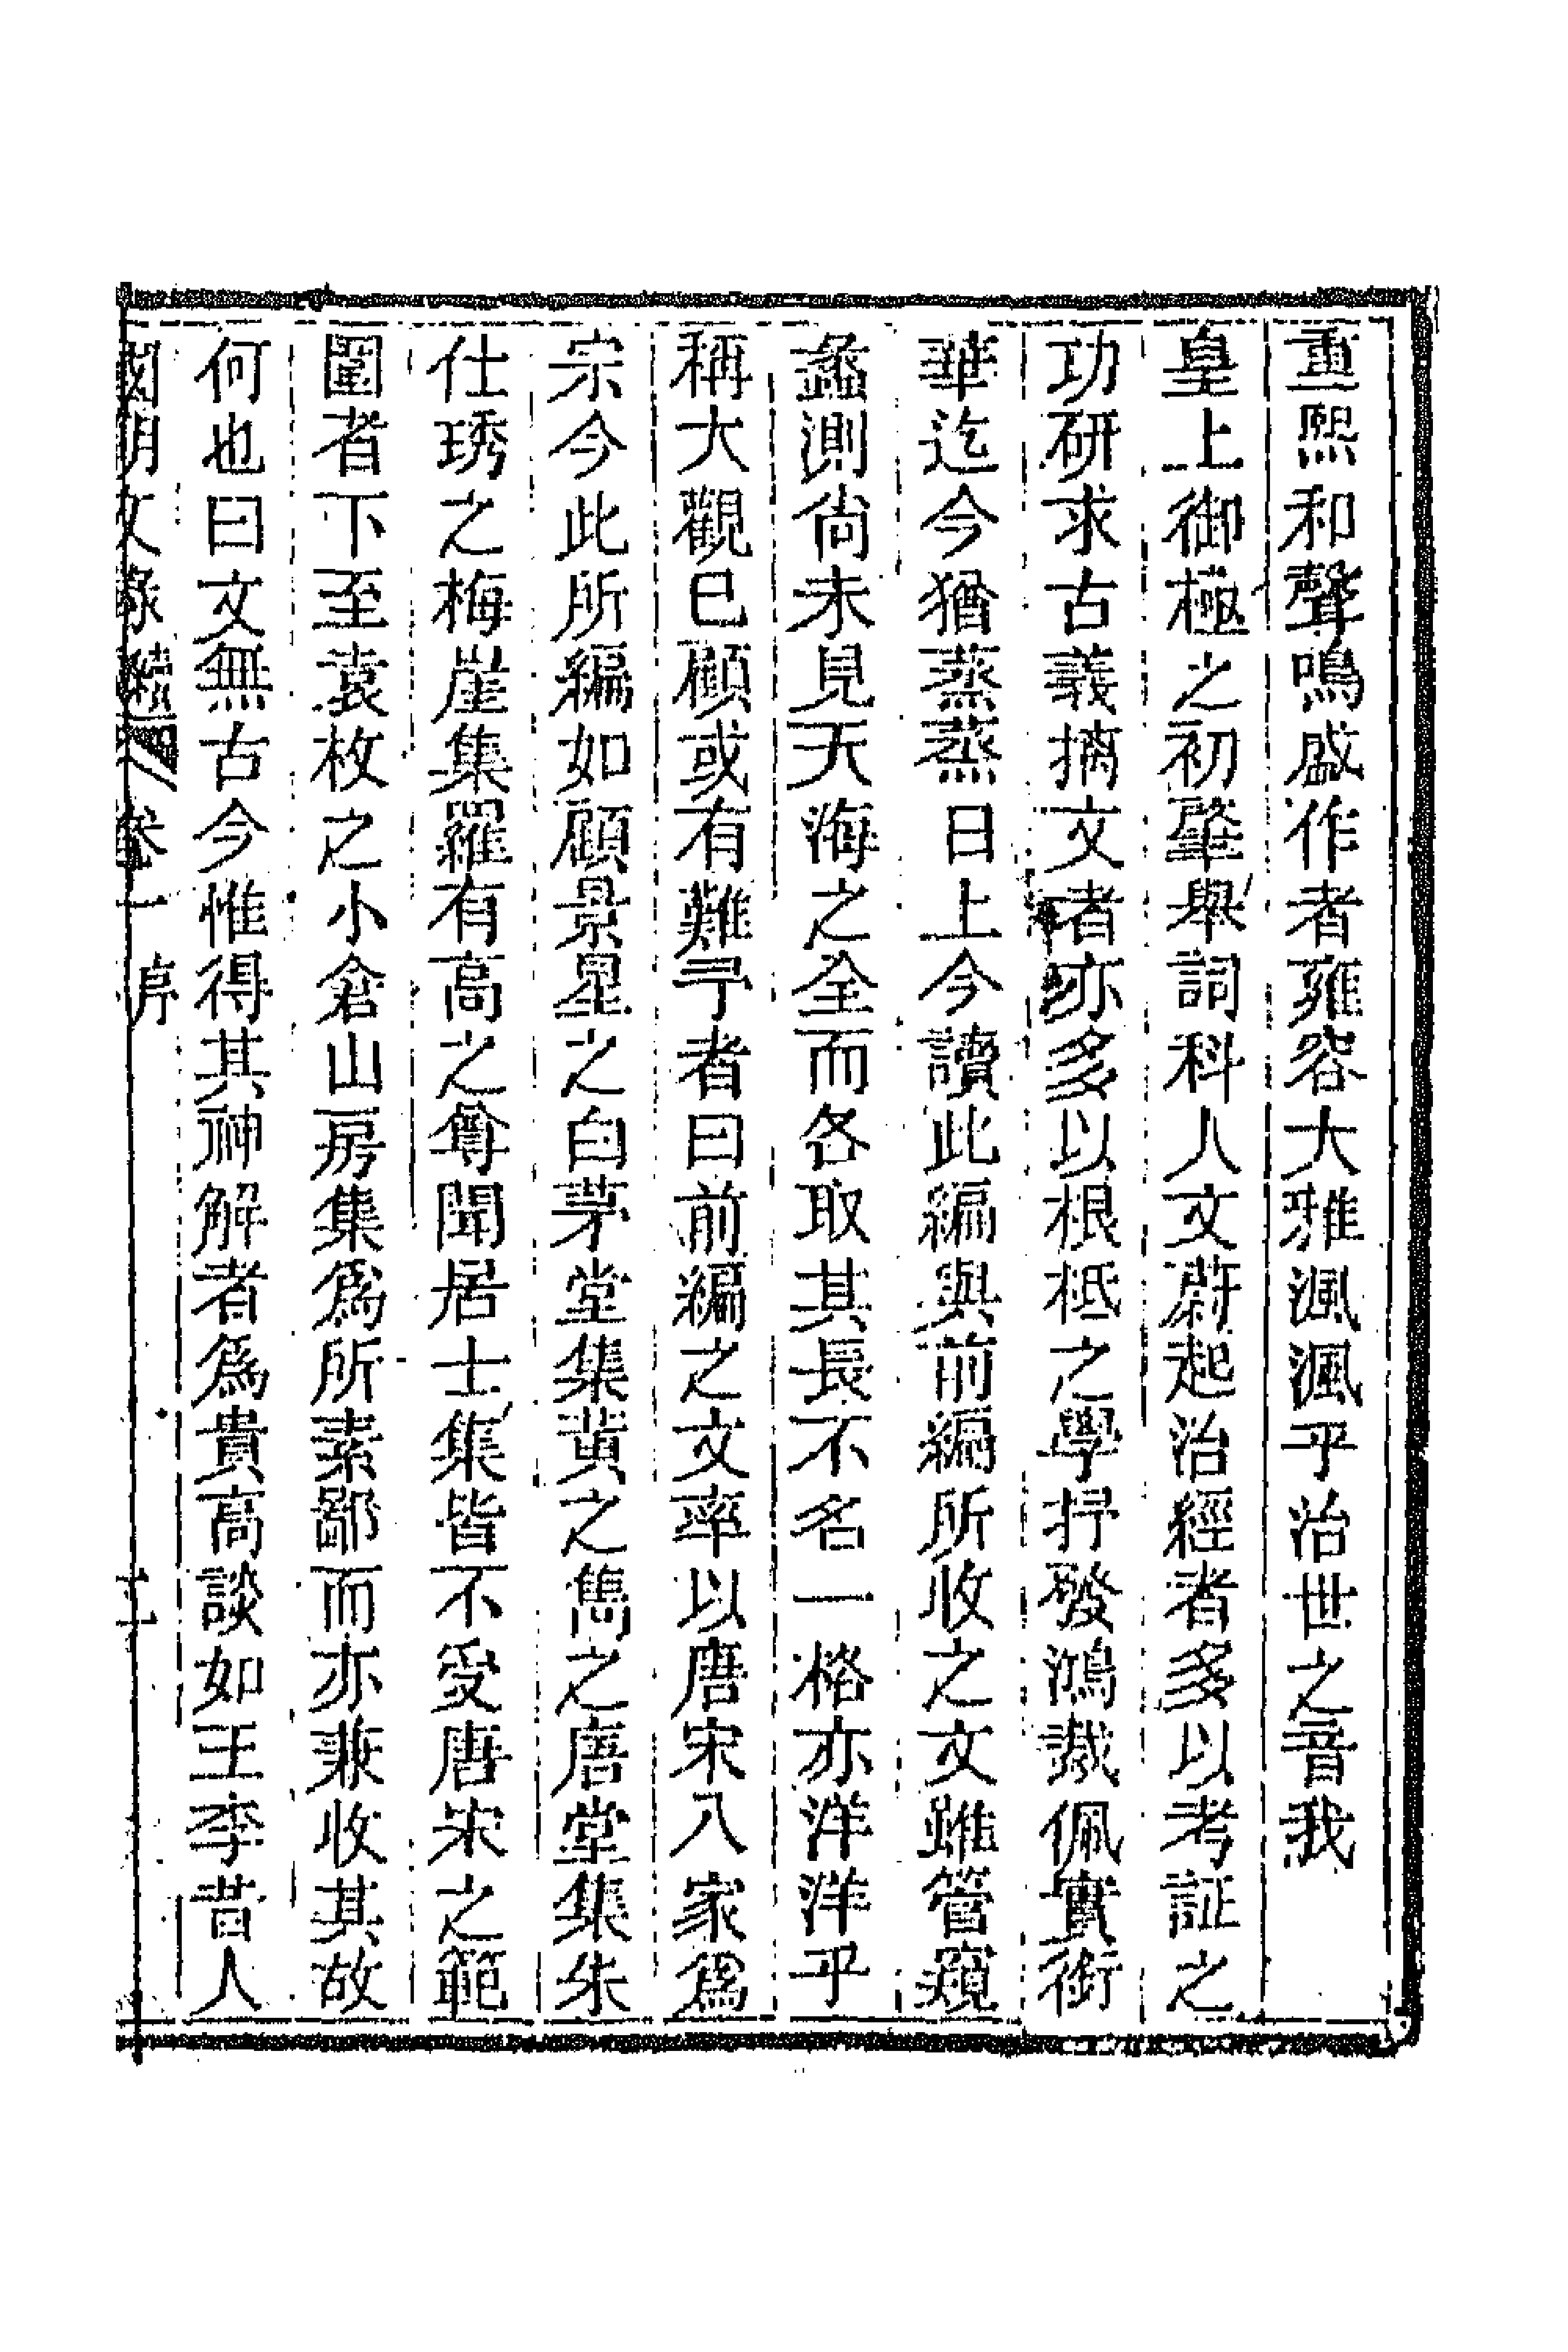 重熙和聲鳴盛作者雍容大雅渢渢乎治世之音我
皇上御極之初肇舉詞科人文蔚起治經者多以考証之
功研求古義摛文者亦多以根柢之學抒發鴻裁佩實銜
華迄今猶蒸蒸日上今讀此編與前編所收之文雖管窺
蠡測尚未見天海之全而各取其長不名一格亦洋洋乎
稱大觀已顧或有難予者曰前編之文率以唐宋八家爲
宗今此所編如顧景星之白茅堂集黃之雋之唐堂集朱
仕琇之梅崖集羅有高之尊聞居士集皆不受唐宋之範
圍者下至袁枚之小倉山房集爲所素鄙而亦兼收其故
何也曰文無古今惟得其神解者爲貴高談如王李昔人
國朝文錄續編 卷一 序 二